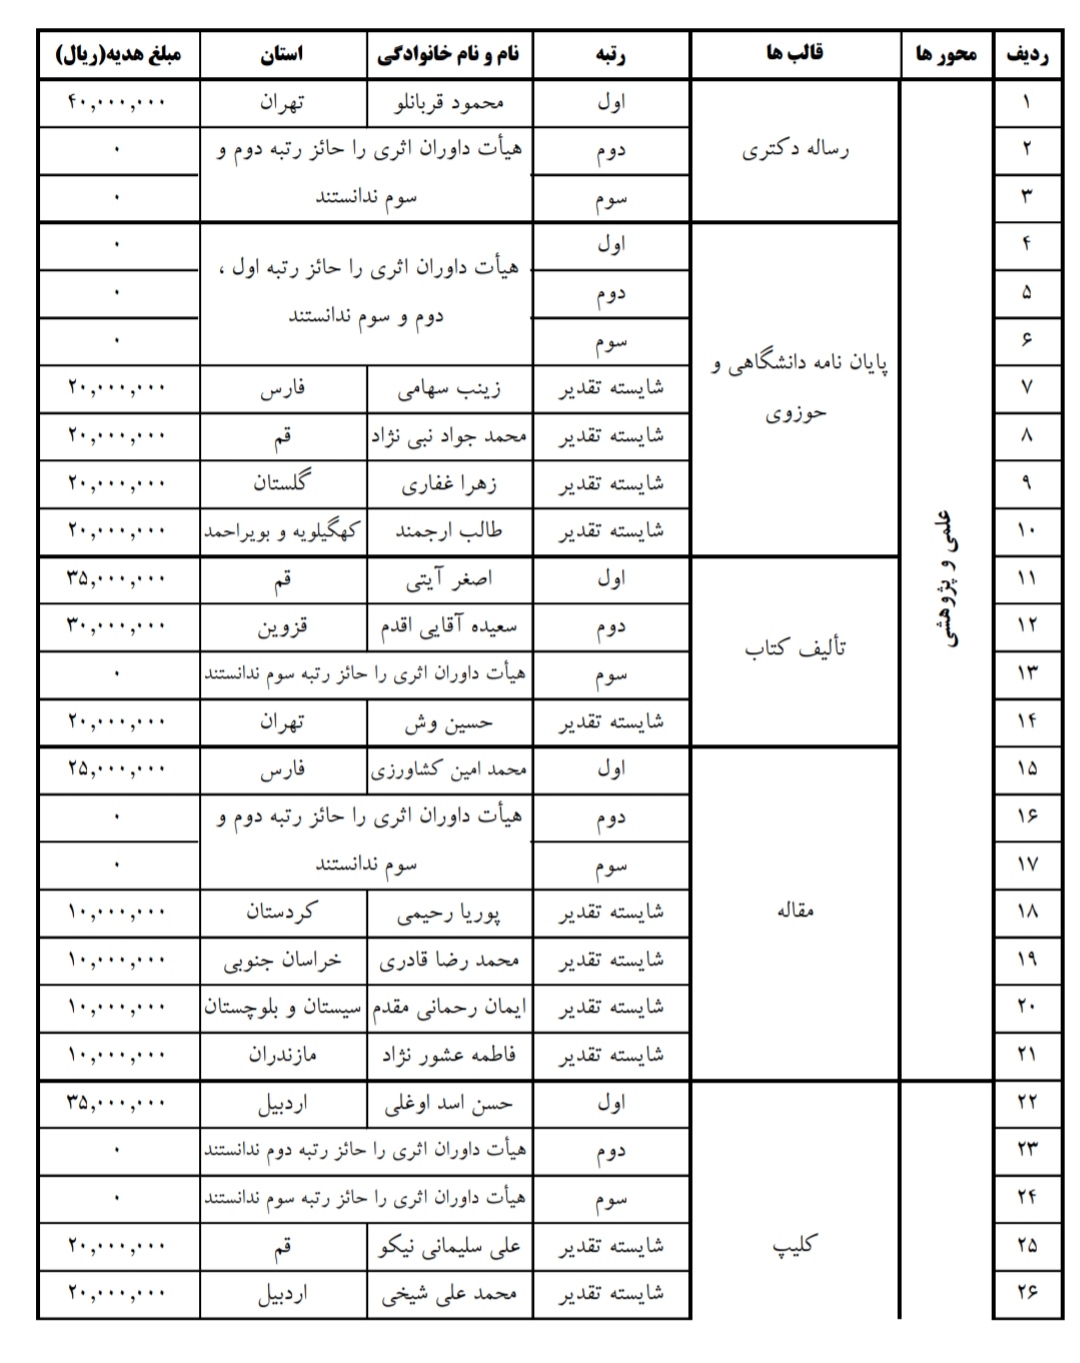 ردیف محور ها قالب ها رتبه نام و نام خانوادگی استان مبلغ هدیه(ریال)
۱ علمی و پژوهشی رساله دکتری اول محمود قربانلو تهران ۴۰,۰۰۰,۰۰۰
۲ دوم هیأت داوران اثری را حائز رتبه دوم و ۰
۳ سوم سوم ندانستند ۰
۴ پایان نامه دانشگاهی و اول هیأت داوران اثری را حائز رتبه اول ، ۰
۵ حوزوی دوم دوم و سوم ندانستند ۰
۶ سوم ۰
۷ شایسته تقدیر زینب سهامی فارس ۲۰,۰۰۰,۰۰۰
۸ شایسته تقدیر محمد جواد نبی نژاد قم ۲۰,۰۰۰,۰۰۰
۹ شایسته تقدیر زهرا غفاری گلستان ۲۰,۰۰۰,۰۰۰
۱۰ شایسته تقدیر طالب ارجمند کهگیلویه و بویراحمد ۲۰,۰۰۰,۰۰۰
۱۱ تألیف کتاب اول اصغر آیتی قم ۳۵,۰۰۰,۰۰۰
۱۲ دوم سعیده آقایی اقدم قزوین ۳۰,۰۰۰,۰۰۰
۱۳ سوم هیأت داوران اثری را حائز رتبه سوم ندانستند ۰
۱۴ شایسته تقدیر حسین وش تهران ۲۰,۰۰۰,۰۰۰
۱۵ مقاله اول محمد امین کشاورزی فارس ۲۵,۰۰۰,۰۰۰
۱۶ دوم هیأت داوران اثری را حائز رتبه دوم و ۰
۱۷ سوم سوم ندانستند ۰
۱۸ شایسته تقدیر پوریا رحیمی کردستان ۱۰,۰۰۰,۰۰۰
۱۹ شایسته تقدیر محمد رضا قادری خراسان جنوبی ۱۰,۰۰۰,۰۰۰
۲۰ شایسته تقدیر ایمان رحمانی مقدم سیستان و بلوچستان ۱۰,۰۰۰,۰۰۰
۲۱ شایسته تقدیر فاطمه عشور نژاد مازندران ۱۰,۰۰۰,۰۰۰
۲۲ کلیپ اول حسن اسد اوغلی اردبیل ۳۵,۰۰۰,۰۰۰
۲۳ دوم هیأت داوران اثری را حائز رتبه دوم ندانستند ۰
۲۴ سوم هیأت داوران اثری را حائز رتبه سوم ندانستند ۰
۲۵ شایسته تقدیر علی سلیمانی نیکو قم ۲۰,۰۰۰,۰۰۰
۲۶ شایسته تقدیر محمد علی شیخی اردبیل ۲۰,۰۰۰,۰۰۰